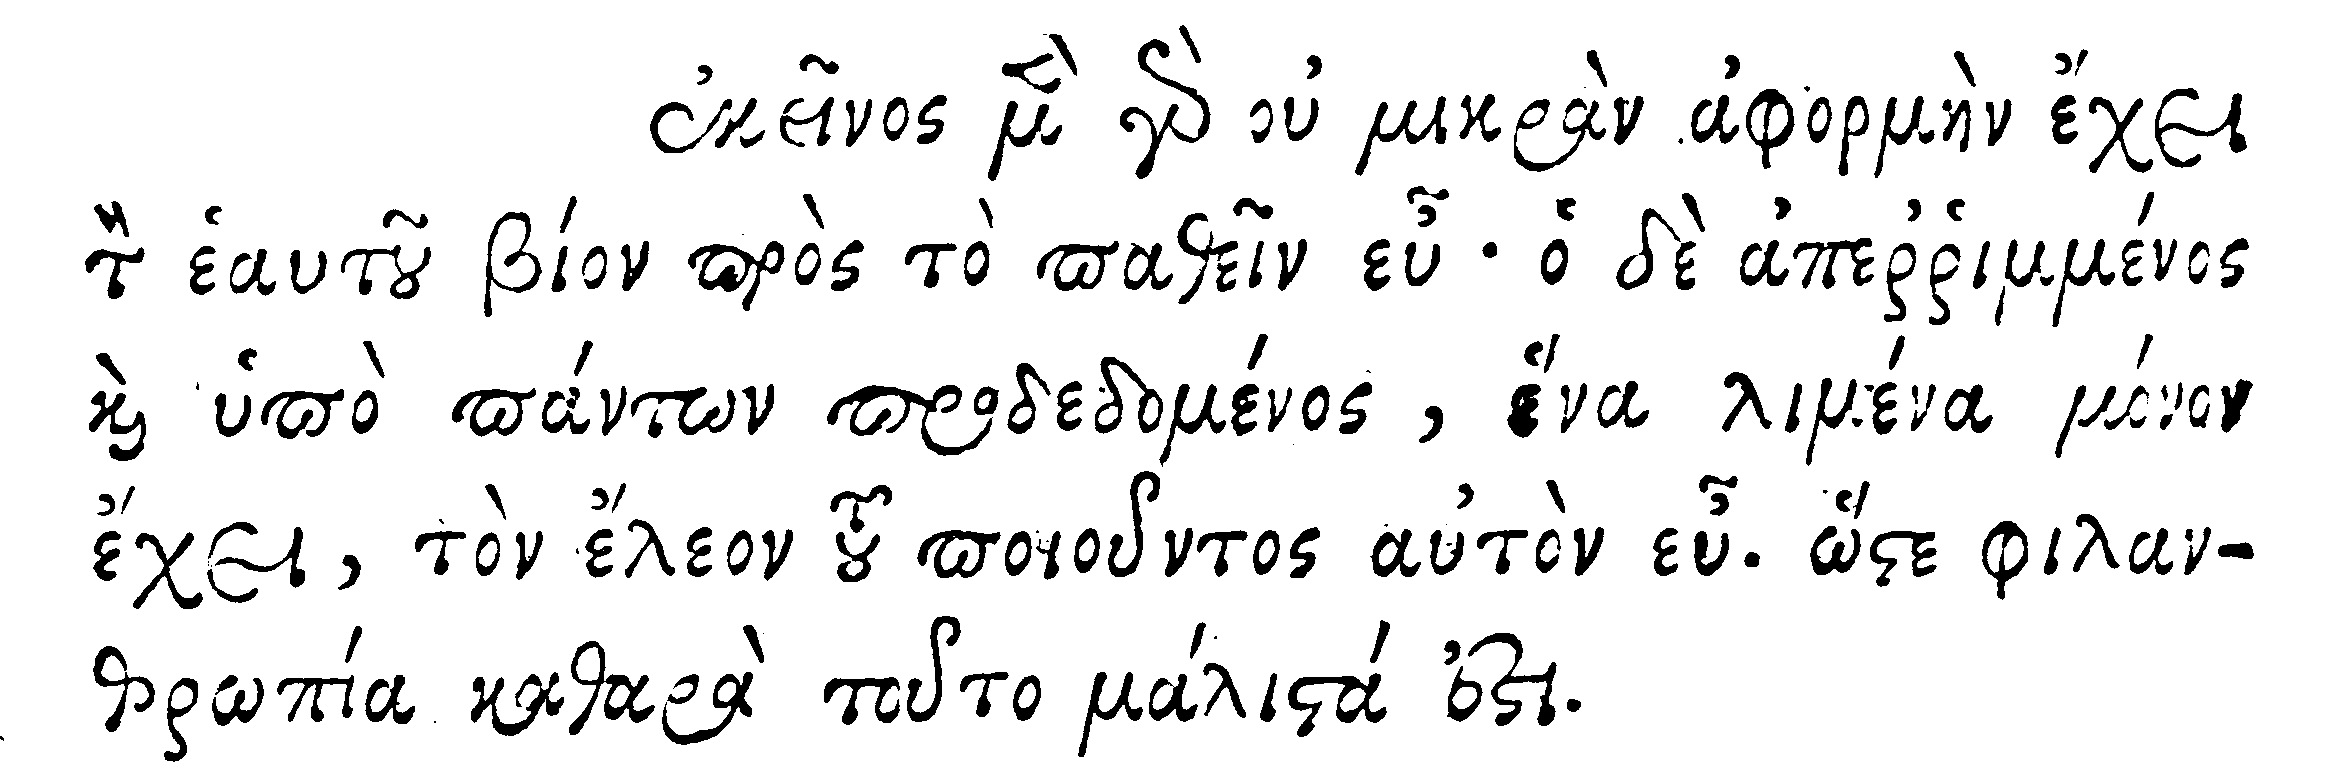 ἐκεῖνος μὲν γὰρ οὐ μικρὰν ἀφορμὴν ἔχει
τὸν ἑαυτοῦ βίον πρὸς τὸ παθεῖν εὖ · ὁ δὲ ἀπεῤῥιμμένος
καὶ ὑπὸ πάντων προδεδομένος, ἕνα λιμένα μόνον
ἔχει, τὸν ἔλεον τοῦ ποιοῦντος αὐτὸν εὖ. ὥστε φιλαν-
θρωπία καθαρὰ τοῦτο μάλιστά ἐστι.